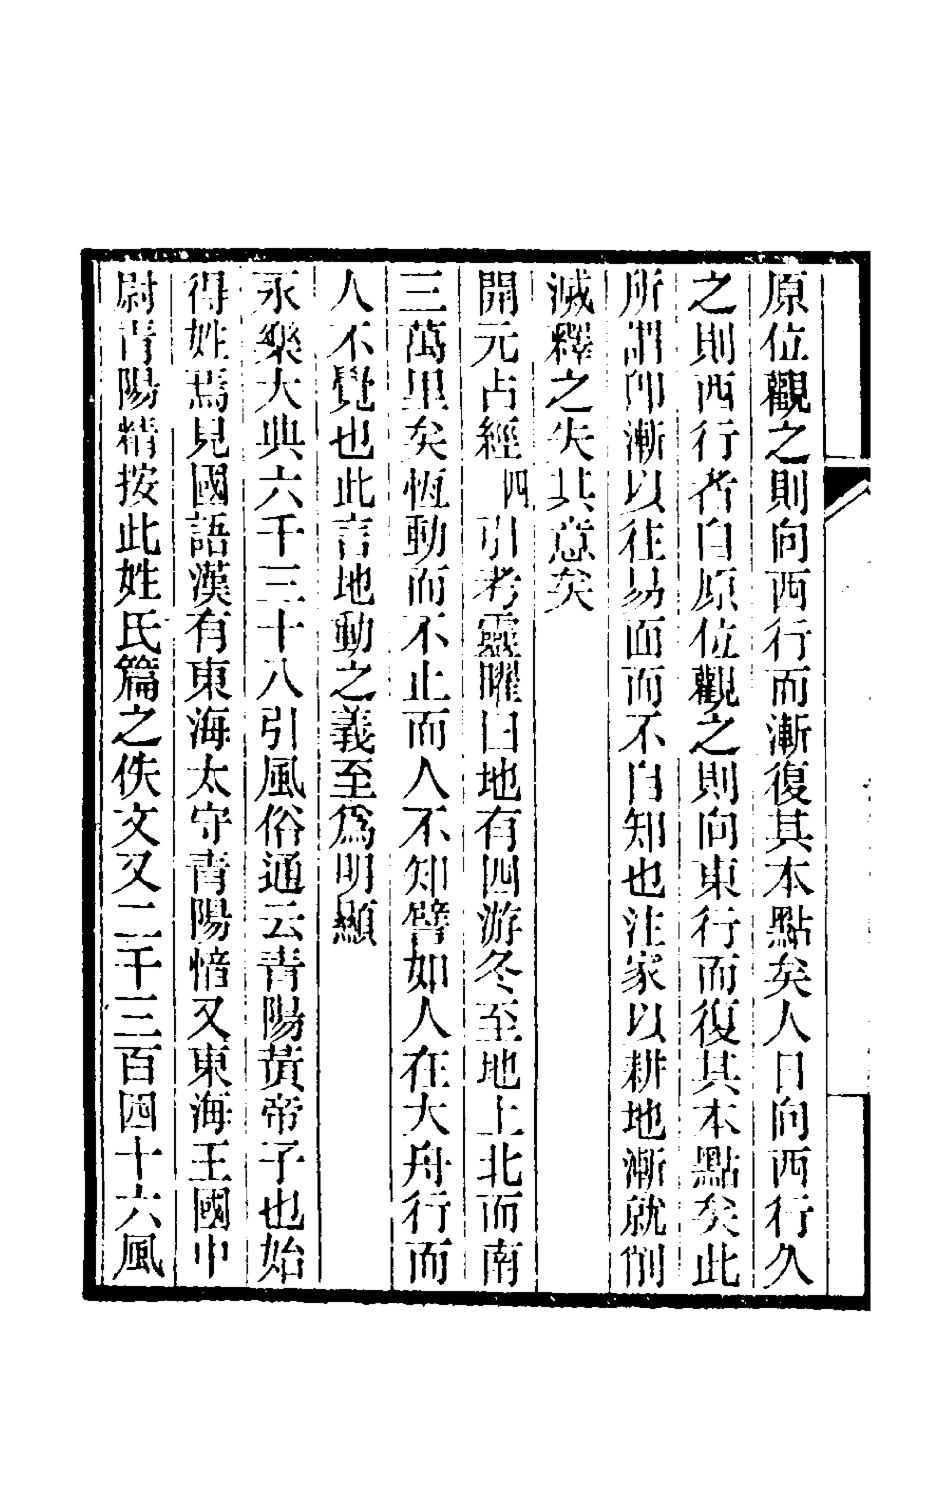 原位觀之則向西行而漸復其本點矣人日向西行久
之則西行者自原位觀之則向東行而復其本點矣此
所謂卽漸以往易面而不自知也注家以耕地漸就削
滅釋之失其意矣
開元占經四引考靈曜曰地有四游冬至地上北而南
三萬里矣恆動而不止而人不知譬如人在大舟行而
人不覺也此言地動之義至爲明顯
永樂大典六千三十八引風俗通云青陽黃帝子也始
得姓焉見國語漢有東海太守青陽愔又東海王國中
尉青陽精按此姓氏篇之佚文又二千三百四十六風